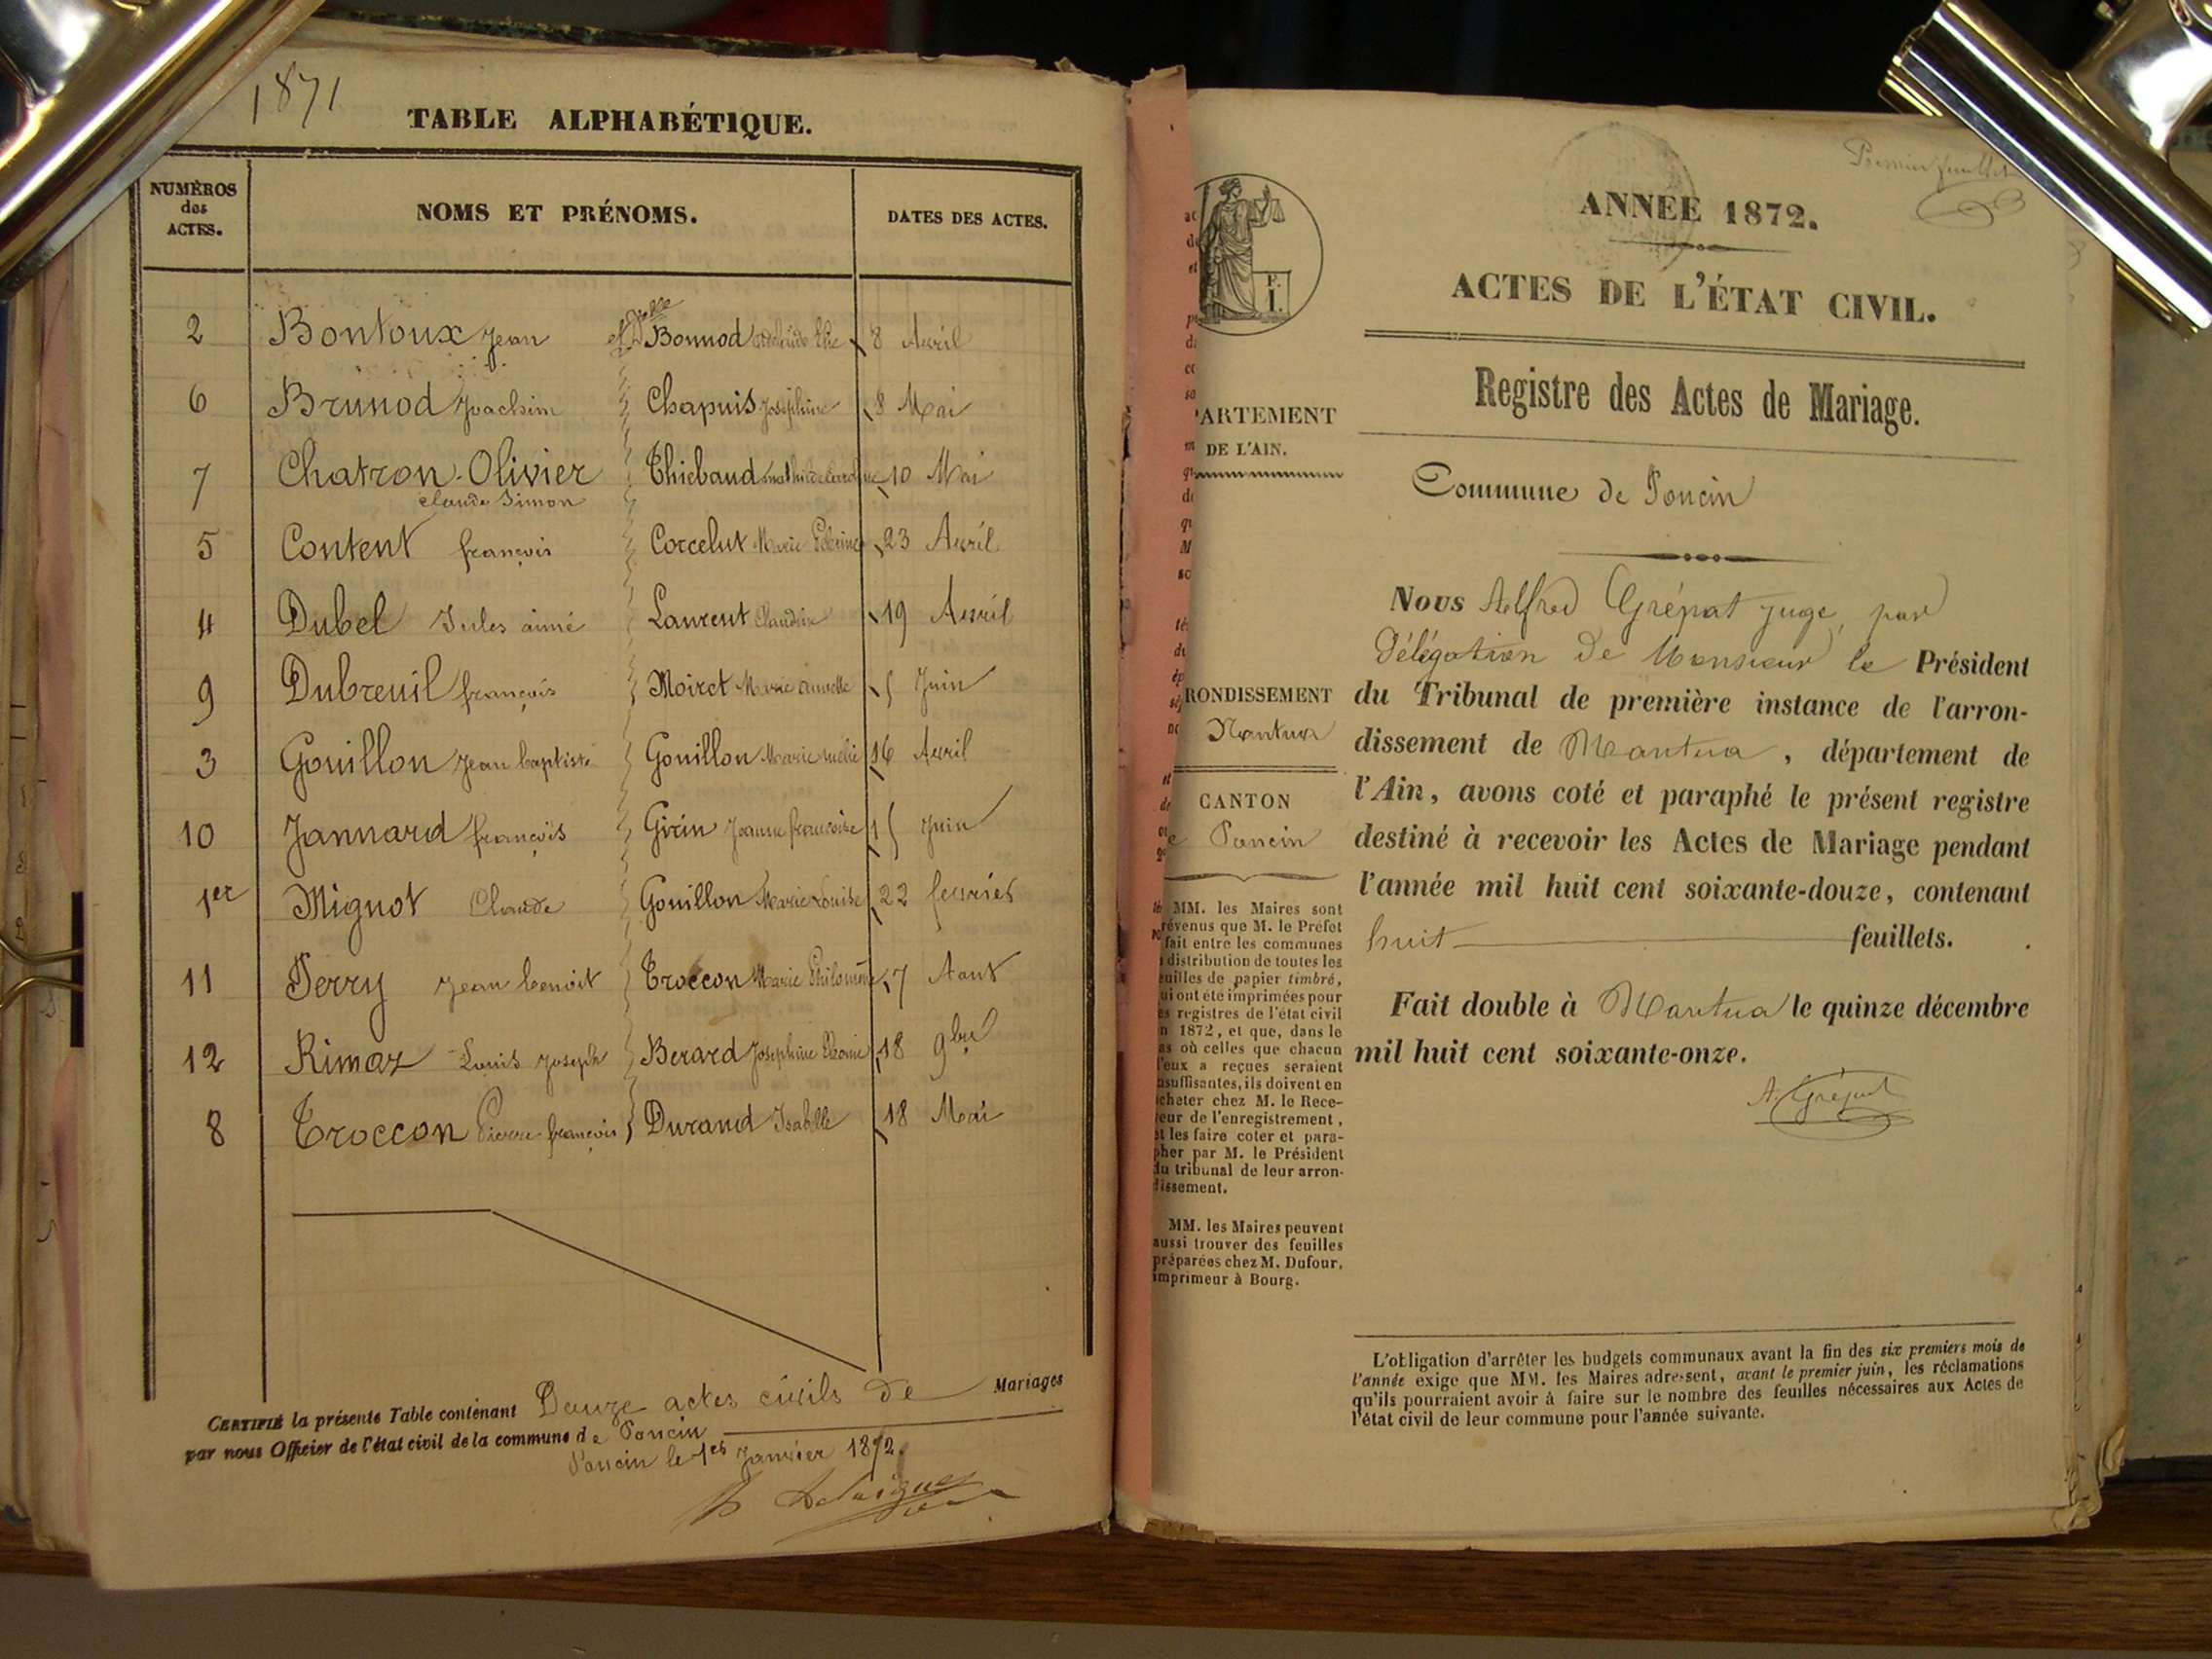 1871
TABLE ALPHABÉTIQUE.
NUMÉROS des ACTES. NOMS ET PRÉNOMS. DATES DES ACTES.
2 Bontoux Jean et Dlle Bonnod 8 Avril
6 Brunod Joachim Chapuis Joséphine 8 Mai
7 Chatron-Olivier Thiebaud 10 Mai
Claude Simon
5 Content françois Corcelut Marie 23 Avril
4 Dubel Jules aimé Laurent Claudine 19 Avril
9 Dubreuil françois Moiret Marie annette 5 Juin
3 Gouillon Jean baptiste Gouillon Marie 16 Avril
10 Jannard françois Girin Jeanne francoise 15 Juin
1er Mignot Claude Gouillon Marie Louise 22 fevrier
11 Perry Jean benoit Troccon Marie Philomène 7 Aout
12 Rimaz Louis Joseph Berard Joséphine 18 9bre
8 Troccon Pierre françois Durand Isabelle 18 Mai
CERTIFIÉ la présente Table contenant Douze actes civils de Mariages
par nous Officier de l'état civil de la commune de Poncin
Poncin le 1er Janvier 1872.
Premier feuillet
ANNÉE 1872.
ACTES DE L'ÉTAT CIVIL.
Registre des Actes de Mariage.
P.
I.
PARTEMENT
DE L'AIN.
Commune de Poncin
Nous Alfred Grépat juge, par
Délégation de Monsieur le Président
du Tribunal de première instance de l'arron-
dissement de Nantua, département de
l'Ain, avons coté et paraphé le présent registre
destiné à recevoir les Actes de Mariage pendant
l'année mil huit cent soixante-douze, contenant
huit feuillets.
Fait double à Nantua le quinze décembre
mil huit cent soixante-onze.
A. Grépat
RONDISSEMENT
Nantua
CANTON
e Poncin
MM. les Maires sont
révenus que M. le Préfet
fait entre les communes
distribution de toutes les
euilles de papier timbré,
ui ont été imprimées pour
es registres de l'état civil
n 1872, et que, dans le
as où celles que chacun
l'eux a reçues seraient
nsuffisantes, ils doivent en
cheter chez M. le Rece-
eur de l'enregistrement,
t les faire coter et para-
pher par M. le Président
du tribunal de leur arron-
dissement.
MM. les Maires peuvent
aussi trouver des feuilles
préparées chez M. Dufour,
imprimeur à Bourg.
L'obligation d'arrêter les budgets communaux avant la fin des six premiers mois de
l'année exige que MM. les Maires adressent, avant le premier juin, les réclamations
qu'ils pourraient avoir à faire sur le nombre des feuilles nécessaires aux Actes de
l'état civil de leur commune pour l'année suivante.